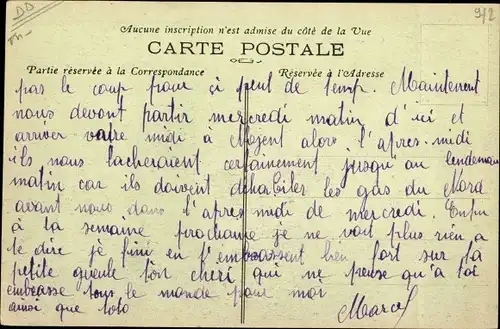 DD
9/2
Aucune inscription n'est admise du côté de la Vue
CARTE POSTALE
Partie réservée à la Correspondance
Réservée à l'Adresse
pas le coup pour si peut de temp. Maintenent
nous devont partir mercredi matin d'ici et
arriver vaire midi à Nojent alors l'apres-midi
ils nous lacheraient certainement jusqu'au lendemain
matin car ils doivent déhabiler les gas du Nord
avant nous dans l'apres midi de mercredi. Enfin
à la semaine prochaine je ne voit plus rien a
te dire je fini en t'embrassent bien fort sur ta
petite gueule ton cheri qui ne pense qu'à toi
embrasse tous le monde pour moi
ainsi que toto
Marcel